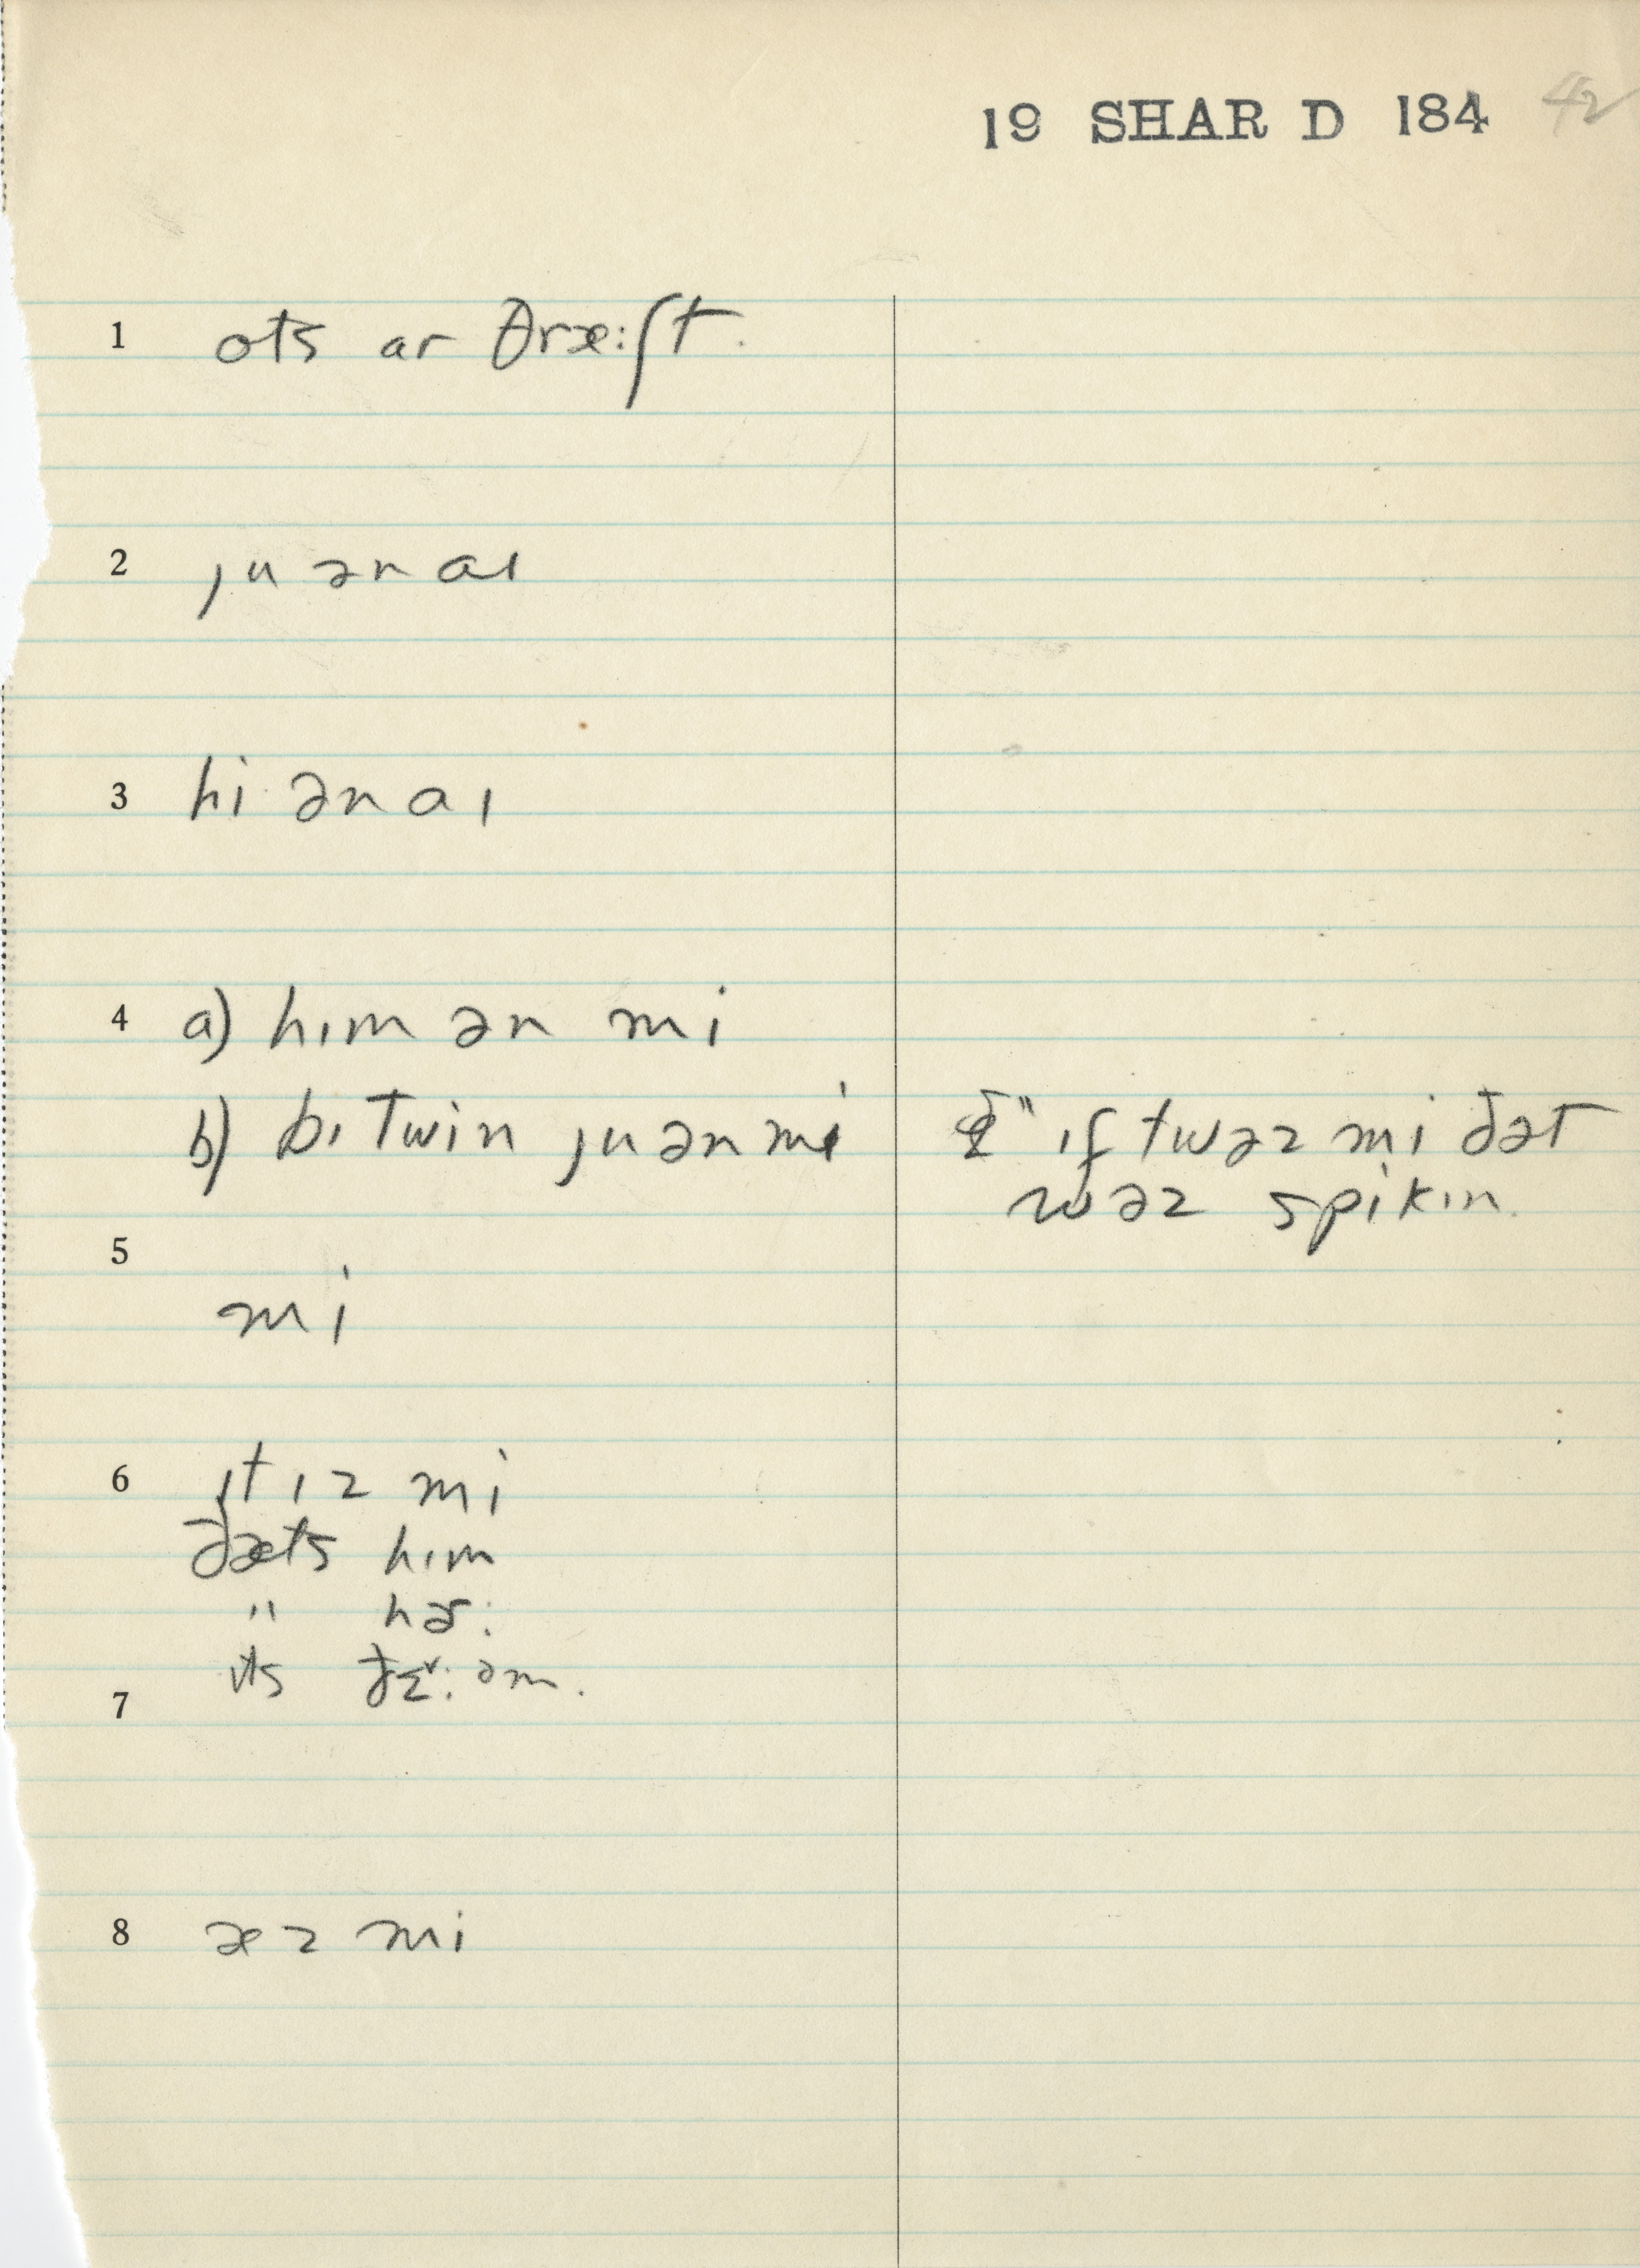 19 SHAR D 184 42
1 ots ar θræ:ʃt.
2 ju ən aɪ
3 hi ən aɪ
4 a) hɪm ən mi
b) bɪtwin ju ən mi " ɪf twəz mi ðət
wəz spikɪn.
5
mi
6 ɪt ɪz mi
ðæts hɪm
" hɚ:
ɪts ðɛ˅: əm.
7
8 æz mi